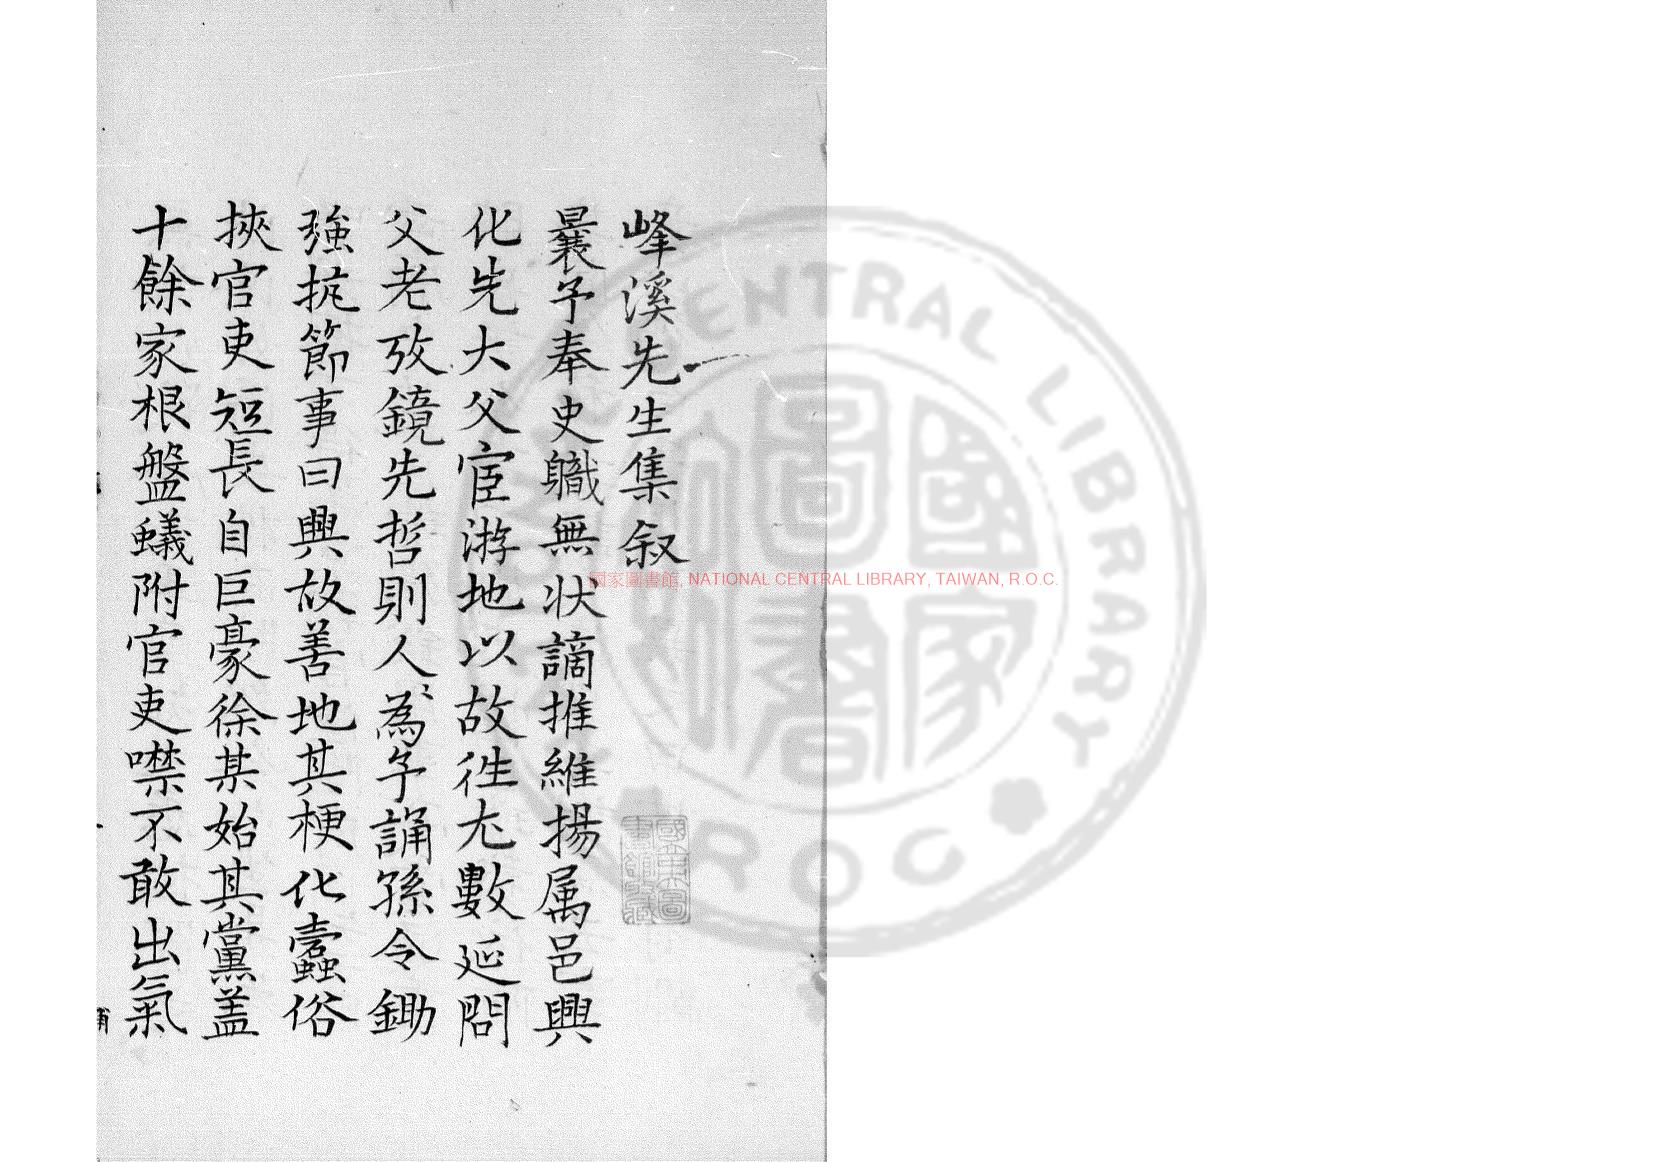 峰溪先生集叙
曩予奉史職無状謫推維揚属邑興
化先大父宦游地以故徃尤數延問
父老攷鏡先哲則人〻為予誦孫令鋤
強抗節事曰興故善地其梗化蠹俗
挾官吏短長自巨豪徐某始其黨盖
十餘家根盤蟻附官吏噤不敢出氣
國家圖書館, NATIONAL CENTRAL LIBRARY, TAIWAN, R.O.C.
CENTRAL LIBRARY
R O C
國家圖書